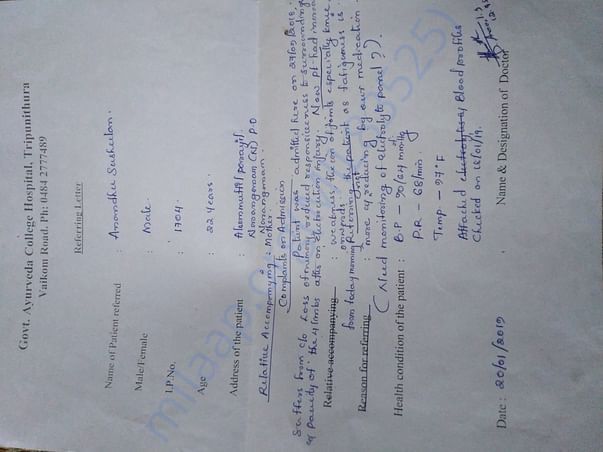 Govt. Ayurveda College Hospital, Tripunithura
Vaikom Road. Ph: 0484 2777489
Referring Letter
Name of Patient referred : Anandhu Sashultan.
Male/Female : Male.
I.P.No. : 1704.
Age : 22 years.
Address of the patient :
Nonangamam (N) P.O
Nonangamam
Relative Accompanying : Mother.
Complaints on Admission
Patient was admitted here on 27/09/2018.
Suffers from c/o Loss of memory, reduced responsiveness to surroundings
of the 4 limbs after an electrocution injury. Now pt had more
Relative accompanying : weakness the on of joints especially knee
from today morning onwards.
Reason for referring : Referring the patient as fatigueness is
not more reducing by our medication.
(Need monitoring of electrolyte panel ?).
Health condition of the patient : B.P - 90/64 mmHg
P.R - 68/min.
Temp - 97°F
Attached Blood profiles
Checked on 16/01/19.
Date : 20/01/2019
Name & Designation of Doctor
milaap.o